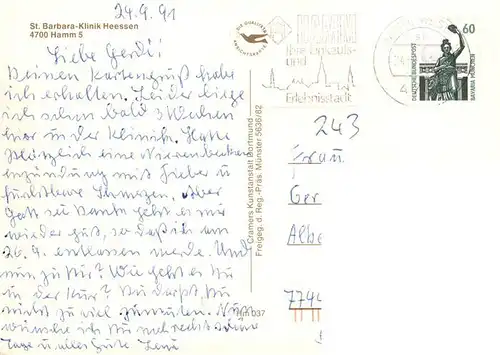 24.9.91
St. Barbara-Klinik Heessen
4700 Hamm 5
Liebe Gerdi!
Deinen Kartengruß habe
ich erhalten. Leider liege
ich schon bald 3 Wochen
hier in der Klinik. Hatte
plötzlich eine Nierenbecken
entzündung mit Fieber u
furchtbare Schmerzen. Aber
Gott sei Dank geht es mir
wieder gut, so daß ich am
26.9. entlassen werde. Und
nun zu Dir? Wie geht es Dir
in der Kur? Du darfst Dir
nicht zu viel zumuten. Nun
wünsche ich Dir noch recht schöne
Tage u. alles Gute
Cramers Kunstanstalt Dortmund
Freigeg. d. Reg.-Präs. Münster 5636/82
037
DIE QUALITÄTS
ANSICHTSKARTE
HAMM
Ihre Einkaufs-
und
Erlebnisstadt
60
DEUTSCHE BUNDESPOST
BAVARIA MÜNCHEN
243
Frau
Ger
Albe